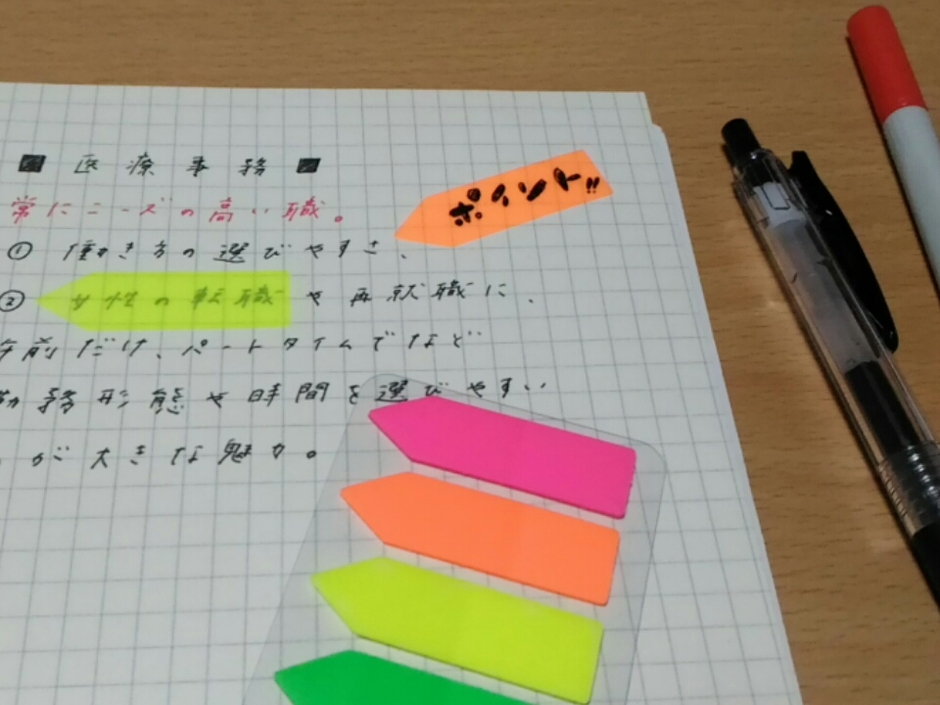 ■ 医療事務 ■
常にニーズの高い職。
ポイント!!
① 働き方の選びやすさ、
② 女性の転職や再就職に、
午前だけ、パートタイムでなど
勤務形態や時間を選びやすい
が大きな魅力。